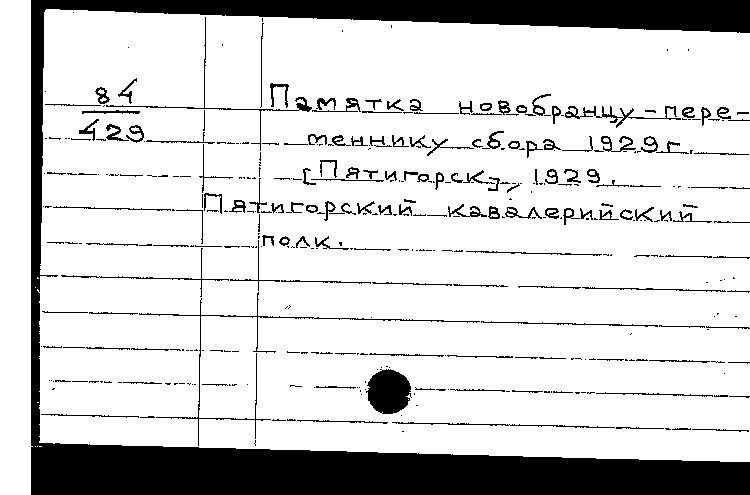 84
429
Памятка новобранцу-пере-
меннику сбора 1929г.
[Пятигорск], 1929.
Пятигорский кавалерийский
полк.